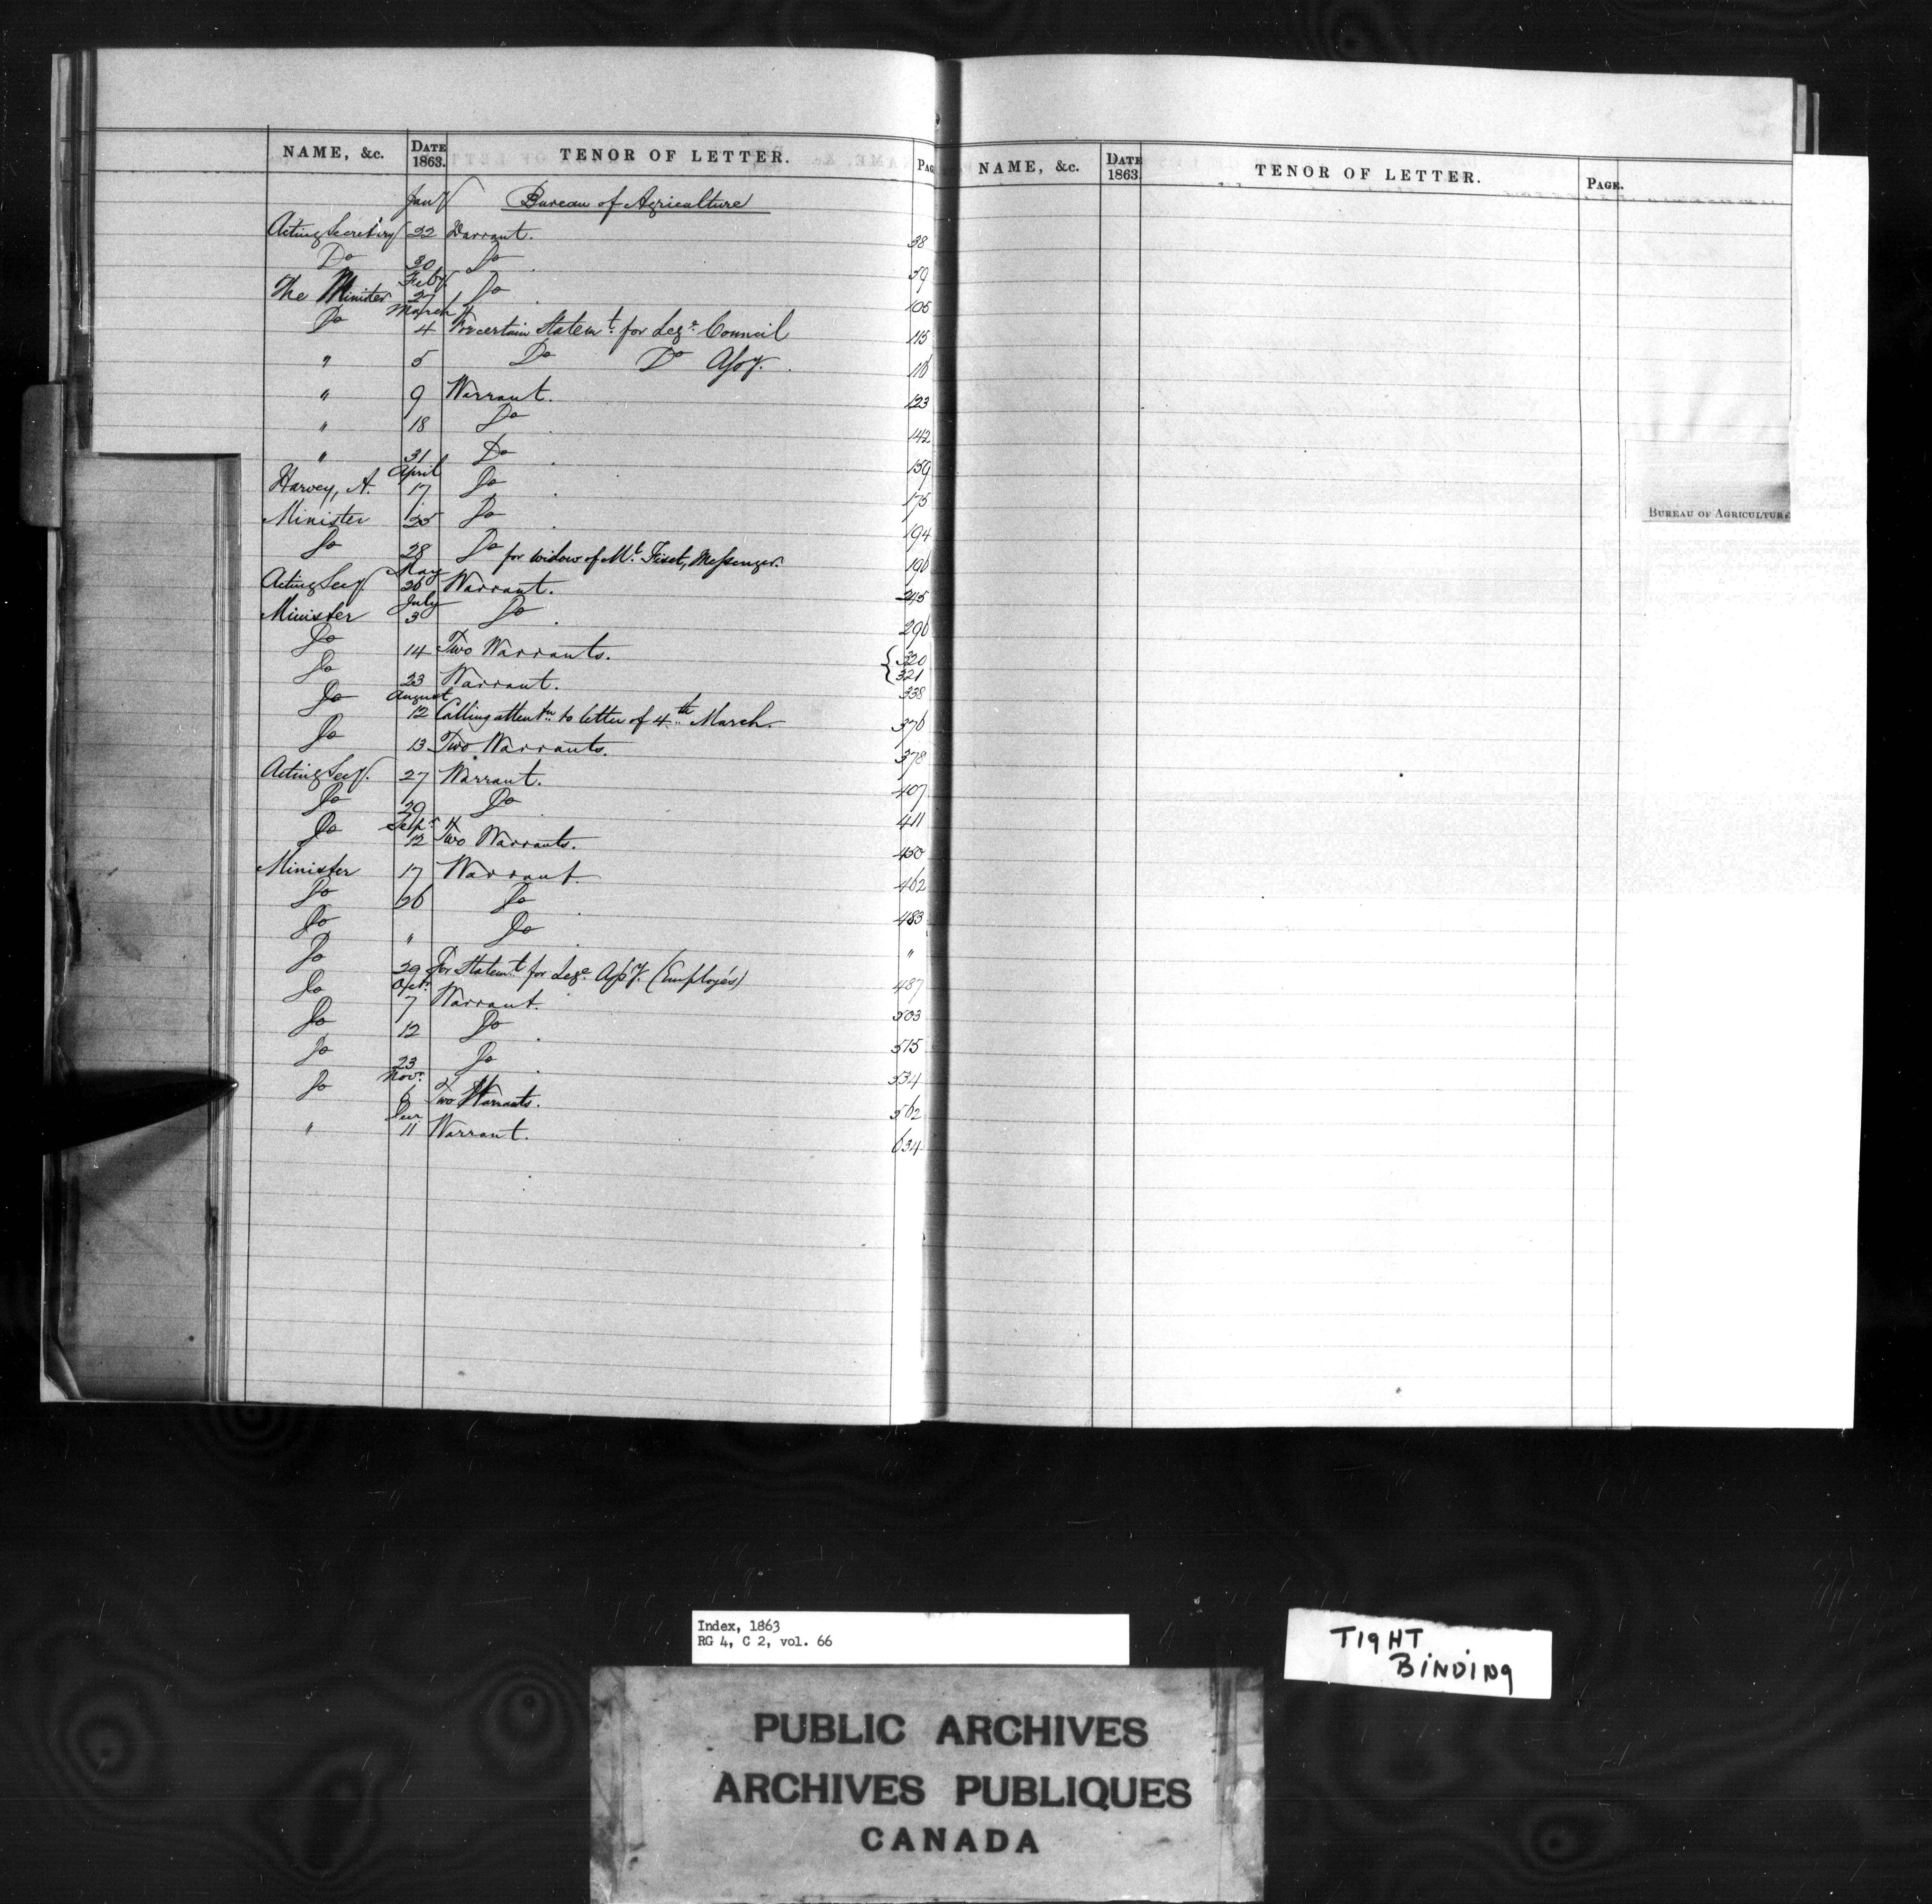 NAME, &c. DATE 1863. TENOR OF LETTER. PAG
Jany Bureau of Agriculture
Acting Secretary 22 Warrant. 38
Do 30 Do. 59
Feby
The Minister 27 Do. 105
March
Do 4 For certain Statemt. for Lege. Council 115
" 5 Do Do Assy. 116
" 9 Warrant. 123
" 18 Do. 142
" 31 Do. 159
April
Harvey, A. 17 Do. 175
Minister 25 Do. 194
Do 28 Do for widow of Mr. Fiset, Messenger. 196
May
Acting Secy. 26 Warrant. 245
July
Minister 3 Do. 296
Do 14 Two Warrants. { 320 321
Do 23 Warrant. 338
August
Do 12 Calling attentn. to letter of 4th March. 376
Do 13 Two Warrants. 378
Acting Secy. 27 Warrant. 407
Do 29 Do 411
Sepr.
Do 12 Two Warrants. 450
Minister 17 Warrant. 462
Do 26 Do. 483
Do " Do. "
Do 29 For Statemt. for Lege. Assy. (Employés) 487
Oct.
Do 7 Warrant. 503
Do 12 Do. 515
Do 23 Do. 534
Novr.
Do 6 Two Warrants. 562
Decr
" 11 Warrant. 634
NAME, &c. DATE 1863 TENOR OF LETTER. PAGE.
BUREAU OF AGRICULTURE
Index, 1863
RG 4, C 2, vol. 66
TIGHT
BINDING
PUBLIC ARCHIVES
ARCHIVES PUBLIQUES
CANADA